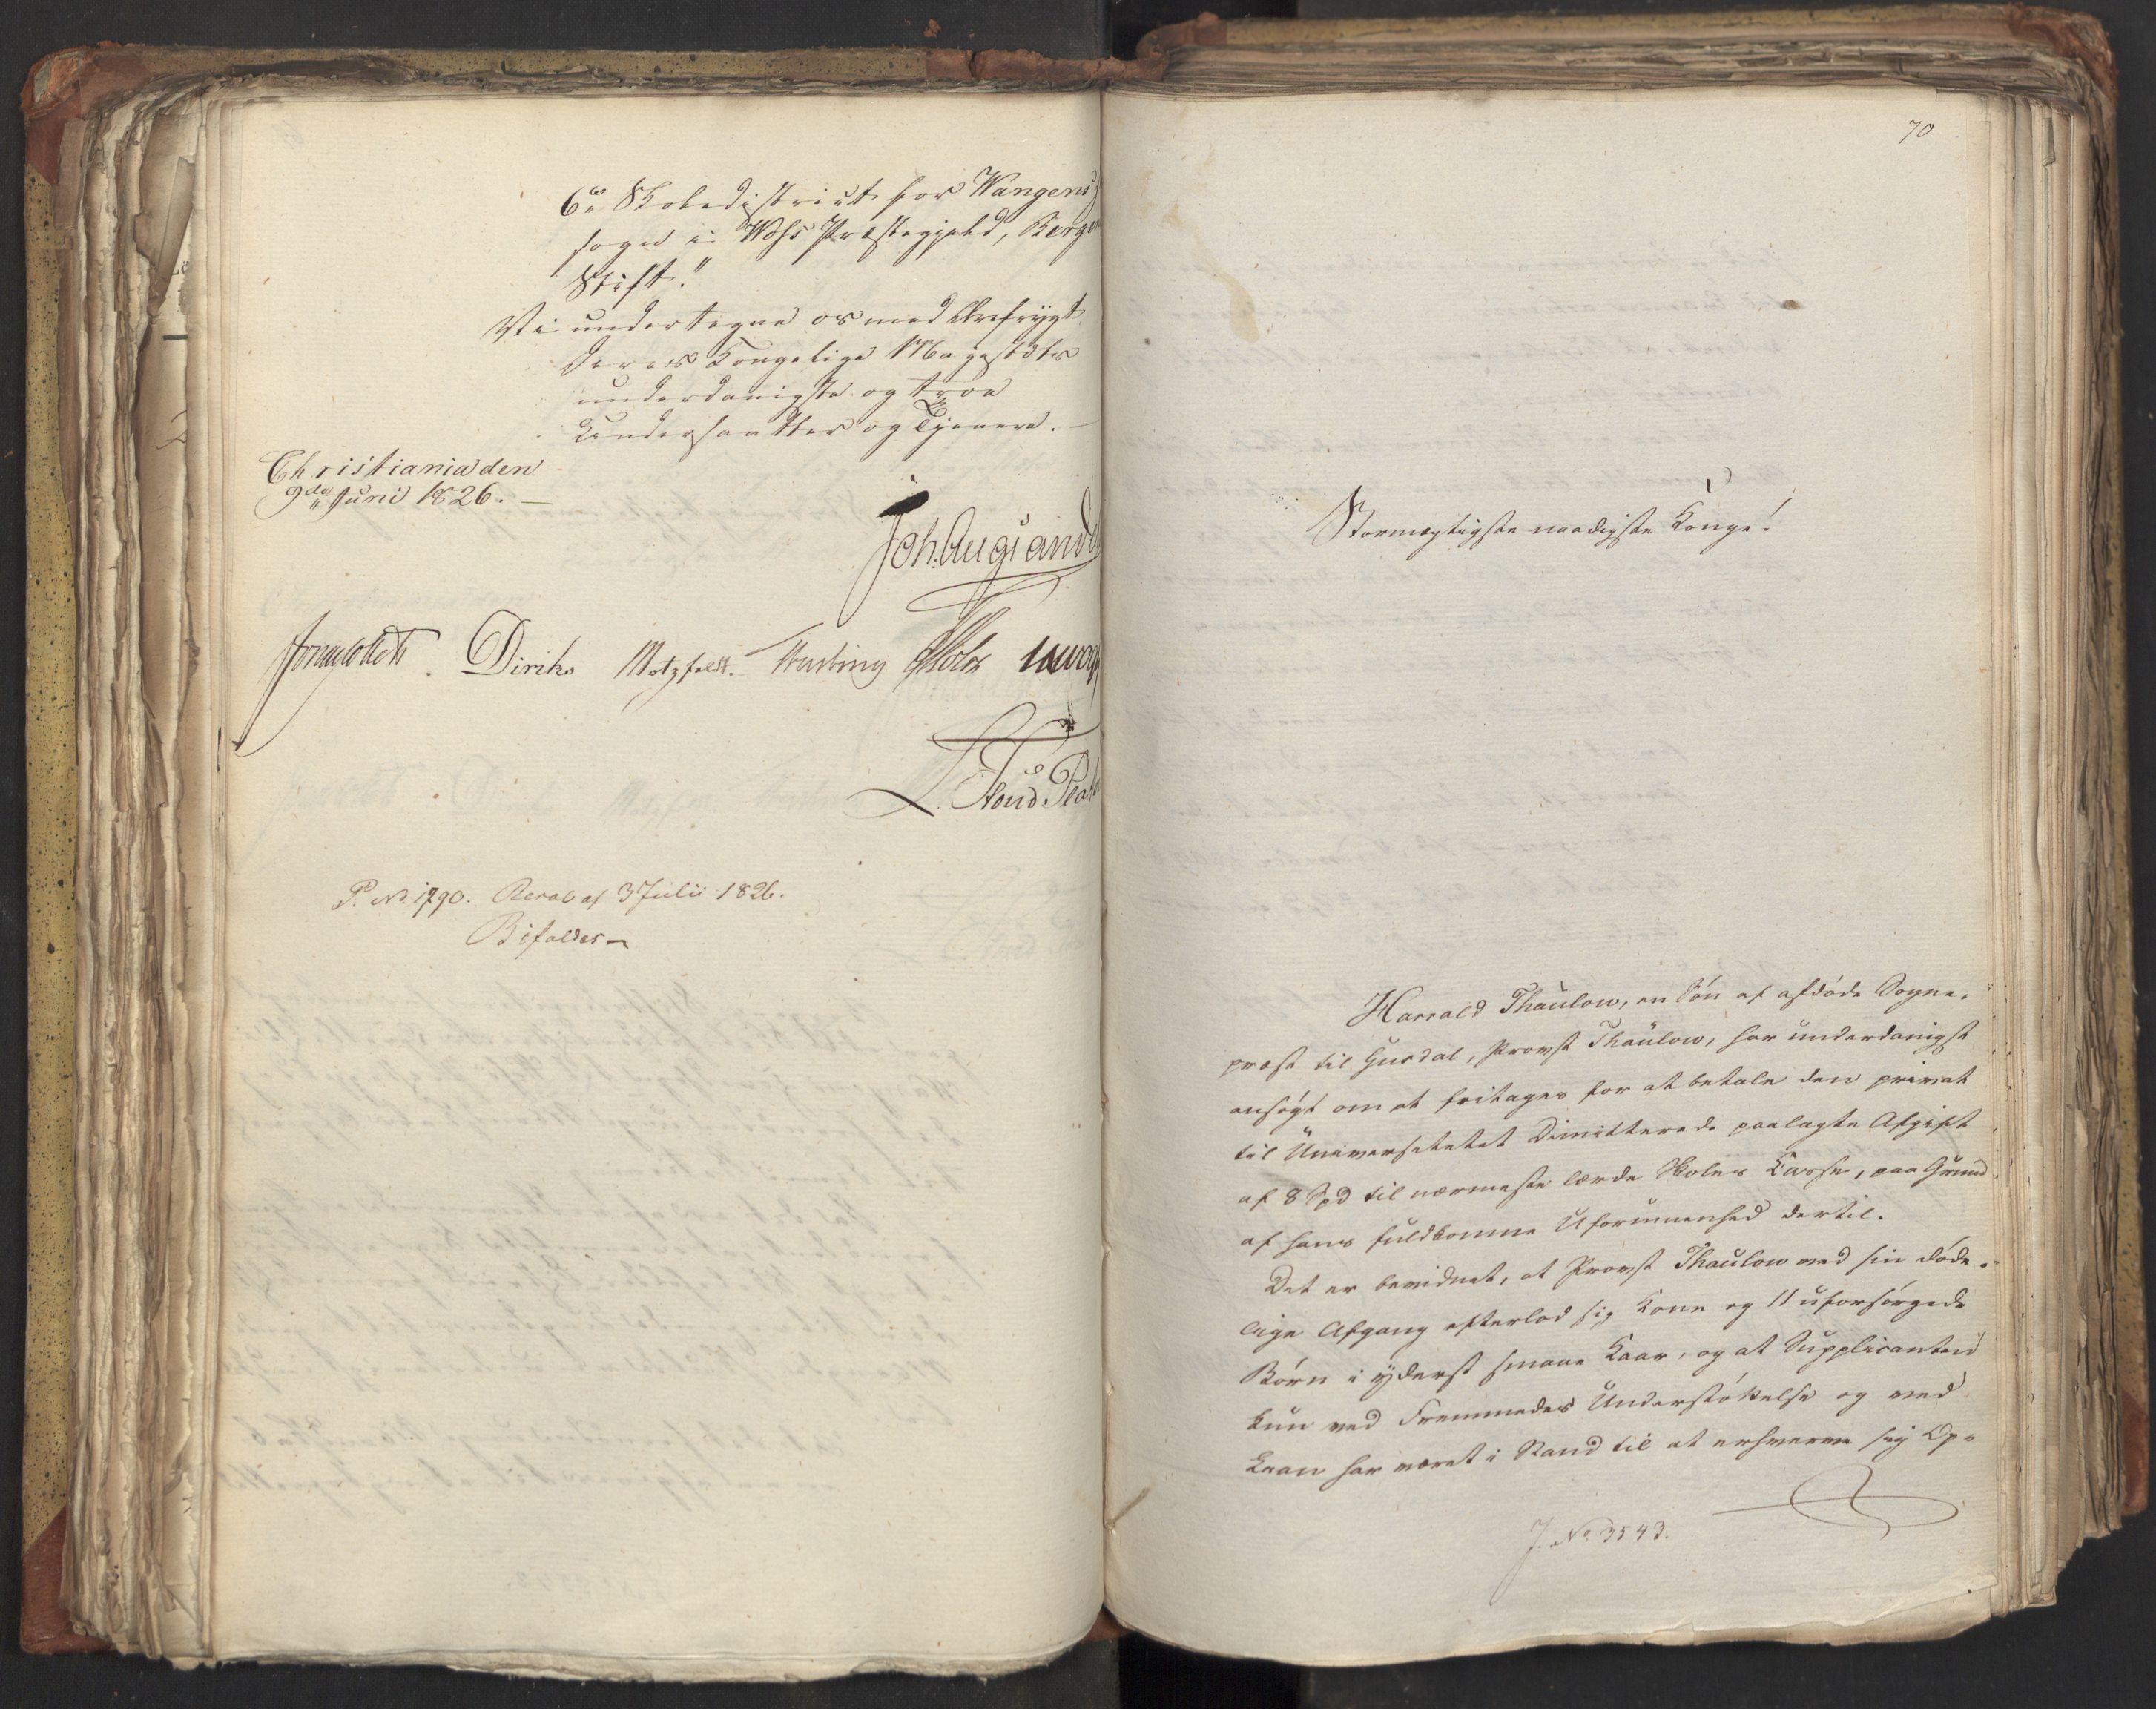 6te Skoledistrict for Wangens
sogn i Woss Præstegjeld, Bergens
Stift."
Vi undertegne os med Ærefrygt
Deres Kongelige Majestæts
underdanigste og troe
Undersaatter og Tjenere.
Christiania den
9de Juni 1826.
Joh. Aug. Sandels
Sommerfeldt. Diriks Motzfeldt. Krebs Holst
P. No 1790. Resol af 3 Julii 1826.
Bifaldes
70
Stormægtigste naadigste Konge!
Harrald Thaulow, en Søn af afdøde Sogne-
præst til Gusdal, Provst Thaulow, har underdanigst
ansøgt om at fritages for at betale den privat
til Universitetet Dimitterede paalagte Afgift
af 8 Spd til nærmeste lærde Skoles Kasse, paa Grund
af hans fuldkomne Uformuenhed dertil.
Det er bevidnet, at Provst Thaulow ved sin døde-
lige Afgang efterlod sig Kone og 11 uforsørgede
Børn i yderst smaae Kaar, og at Supplicanten
kun ved Fremmedes Understøttelse og ved
Laan har været i Stand til at erhverve sig Op-
J. No 3543.